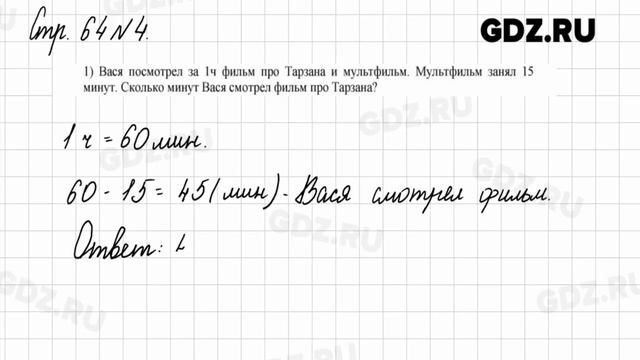 Стр. 64 N 4.
GDZ.RU
1) Вася посмотрел за 1ч фильм про Тарзана и мультфильм. Мультфильм занял 15
минут. Сколько минут Вася смотрел фильм про Тарзана?
1 ч = 60 мин.
60 - 15 = 45 (мин) - Вася смотрел фильм.
Ответ:
GDZ.RU
GDZ.RU
GDZ.RU
GDZ.RU
GDZ.RU
GDZ.RU